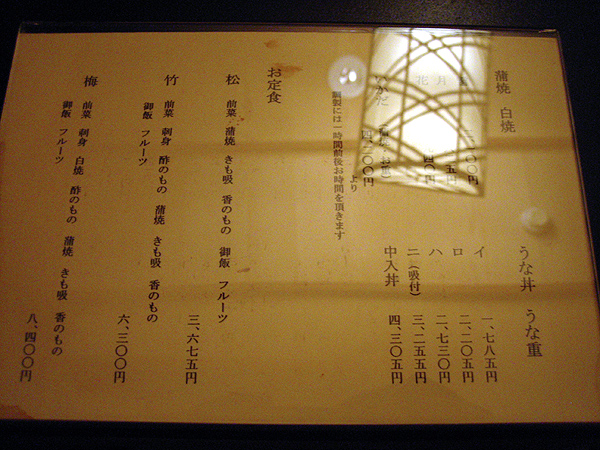 蒲焼 白焼
花
いかだ
四、二〇〇円
より
調製には一時間前後お時間を頂きます
うな丼 うな重
イ 一、七八五円
ロ 二、二〇五円
ハ 二、七三〇円
ニ(吸付) 三、二五五円
中入丼 四、三〇五円
お定食
松 前菜 蒲焼 きも吸 香のもの 御飯 フルーツ
三、六七五円
竹 前菜 刺身 酢のもの 蒲焼 きも吸 香のもの
御飯 フルーツ
六、三〇〇円
梅 前菜 刺身 白焼 酢のもの 蒲焼 きも吸 香のもの
御飯 フルーツ
八、四〇〇円